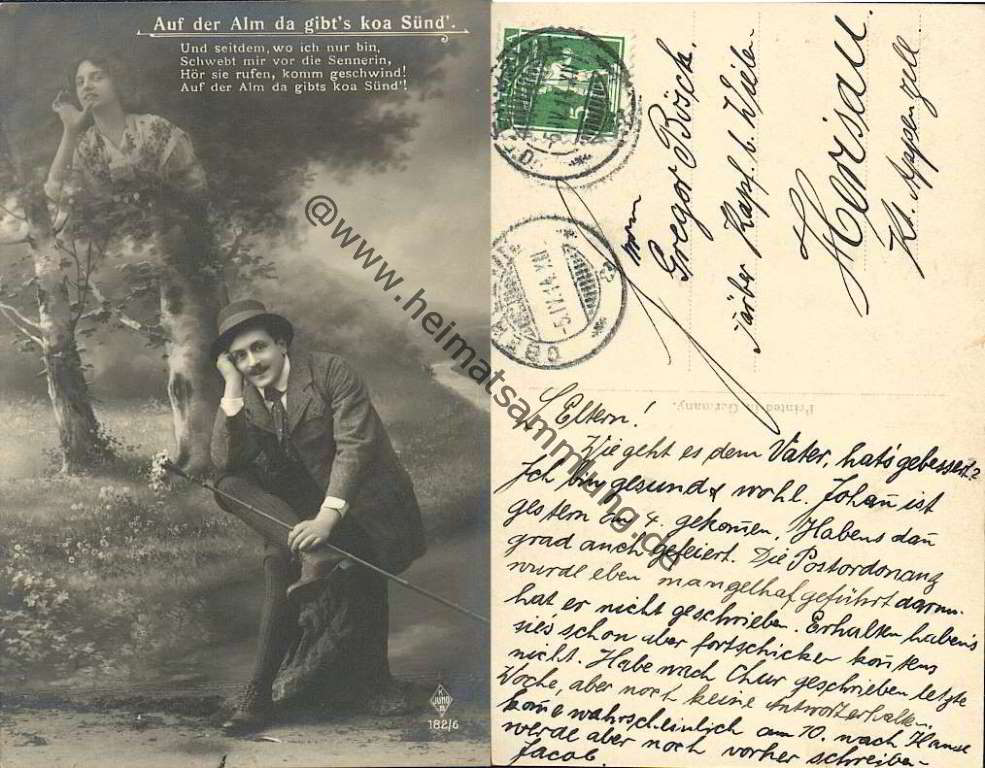 Auf der Alm da gibt's koa Sünd'.
Und seitdem, wo ich nur bin,
Schwebt mir vor die Sennerin,
Hör sie rufen, komm geschwind!
Auf der Alm da gibts koa Sünd'!
K
JUNO
182/6
@www.heimatsammlung.de
5
5.IV.14.XI
OBER
Gregor Bösch.
Färber Kapf. b. Weiler
Herisau.
Kt. Appenzell
Printed in Germany.
L Eltern!
Wie geht es dem Vater, hat's gebessert?
Ich bin gesund & wohl. Johañ ist
gestern am 4. gekom̄en. Habens dañ
grad auch gefeiert. Die Postordonanz
wurde eben mangelhaf geführt darum
hat er nicht geschrieben. Erhalten haben's
sie's schon aber fortschicken koñtens
nicht. Habe nach Chur geschrieben letzte
Woche, aber noch keine Antwort erhalten.
kom̄e wahrscheinlich am 10. nach Hause
werde aber noch vorher schreiben
Jacob.